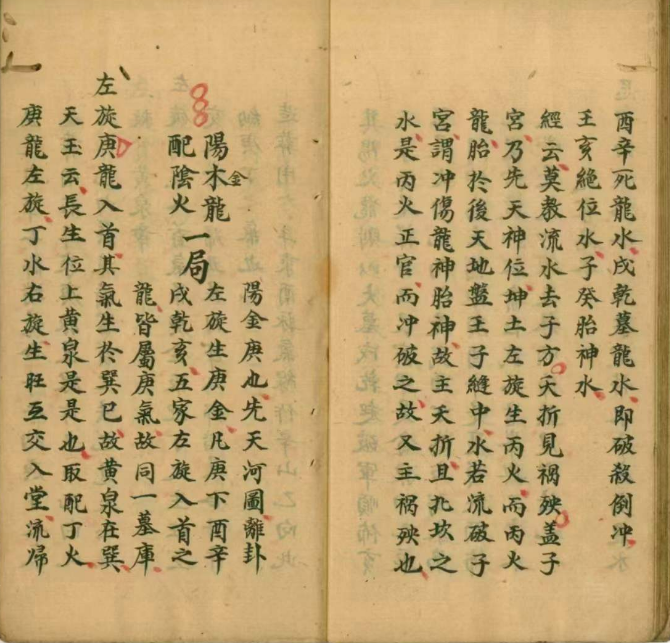 酉辛死龍水戌乾墓龍水即破殺倒冲
王亥絕位水子癸胎神水
經云莫教流水去子方夭折見禍殃盖子
宮乃先天神位坤土左旋生丙火而丙火
龍胎於後天地盤王子縫中水若流破子
宮謂冲傷龍神胎神故主夭折且北坎之
水是丙火正官而冲破之故又主禍殃也
陽木龍
金
配陰火
一局
陽金庚也先天河圖離卦
左旋生庚金凡庚下酉辛
戌乾亥五家左旋入首之
龍皆屬庚氣故同一墓庫
左旋庚龍入首其氣生於巽巳故黃泉在巽
天玉云長生位上黃泉是是也取配丁火
庚龍左旋丁水右旋生旺互交入堂流歸